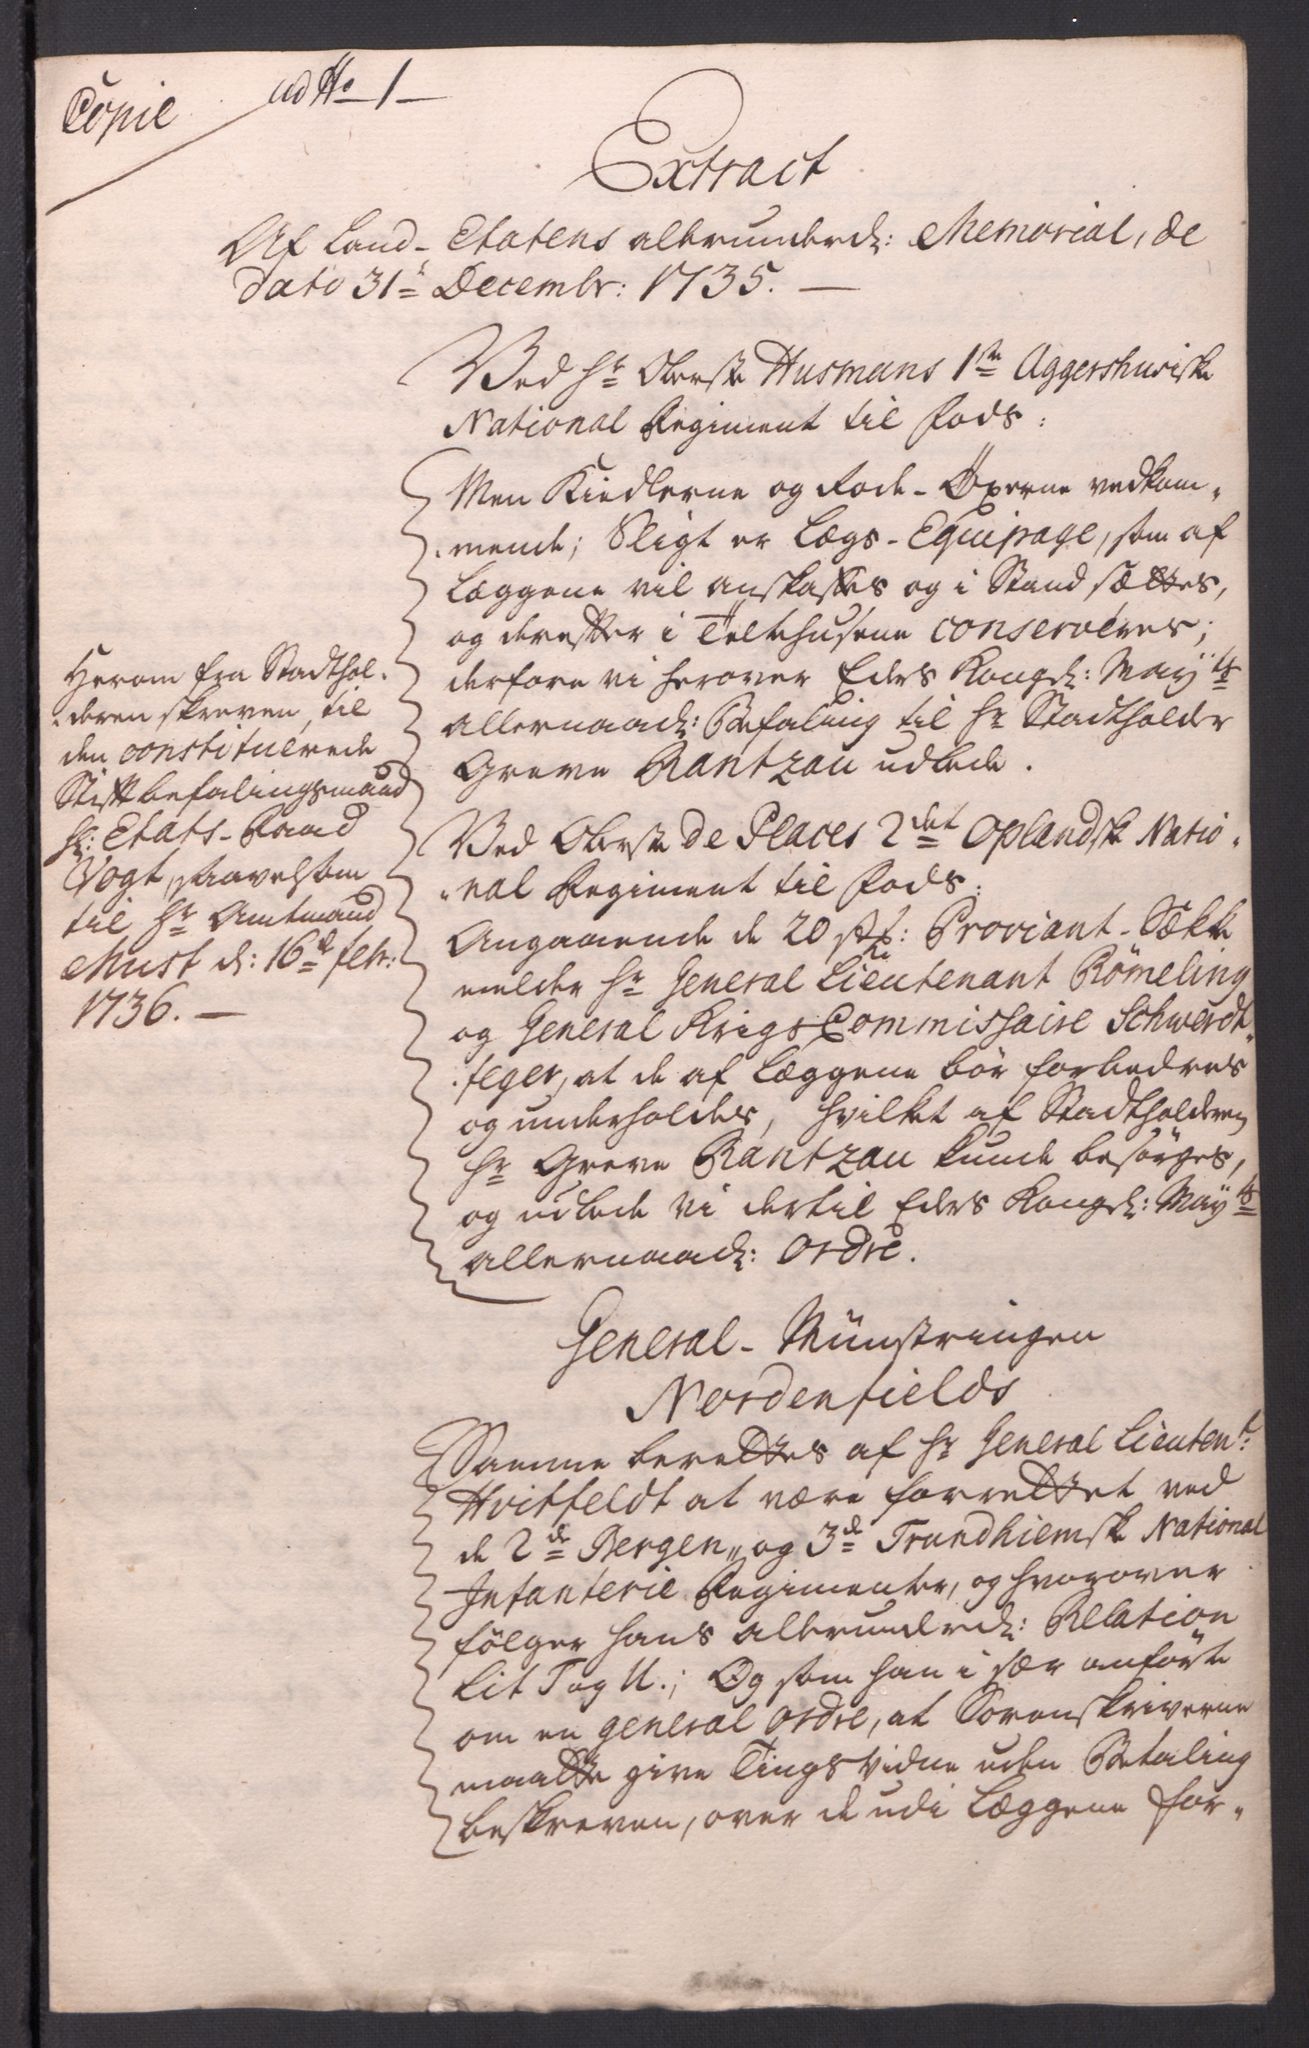 Copie
ad No 1
Extract
Af Land-Etatens allerunderd: Memorial, de
dato 31t Decembr: 1735.
Ved Hr Oberste Husmans 1te Aggershusiske
National Regiment til Fods:
Men Kiedlerne og Rode-Öxerne vedkom-
mende; Sligt er Lægs-Equipage, som af
Læggene vil anskaffes og i Stand sættes,
og derefter i Teltehusene conserveres;
derfore vi herover Eders Kongl: Mayts
allernaad: Befaling til Hr Stadtholder
Greve Rantzau udbede.
Herom fra Stadthol-
deren skreven, til
den constituerede
Stiftbefalingsmand
Hr: Etats-Raad
Vogt, saavelsom
til Hr Amtmand
Must d: 16de febr:
1736.
Ved Oberste de Places 2det Oplandsk Natio-
nal Regiment til Fods:
Angaaende de 20 st: Proviant-Sække
melder Hr General Lieutenant Römeling
og General Krigs Commissaire Schwerdt-
feger, at de af Læggene bör forbedres
og underholdes, hvilket af Stadtholderen
Hr Greve Rantzau kunde besörges,
og udbede vi dertil Eders Kongl: Mayts
allernaad: Ordre.
General-Münstringen
Nordenfields
Samme berettes af Hr General Lieutent:
Hvitfeldt at være forrettet ved
de 2de Bergen„ og 3de Trundhiemske National
Infanterie Regimenter, og hvorover
fölger hans allerunderd: Relation
Lit T og U.; Og som han i sær anförte
om en general Ordre, at Sorenskriverne
maatte give Tingsvidne uden Betaling
beskreven, over de udi Læggene for-